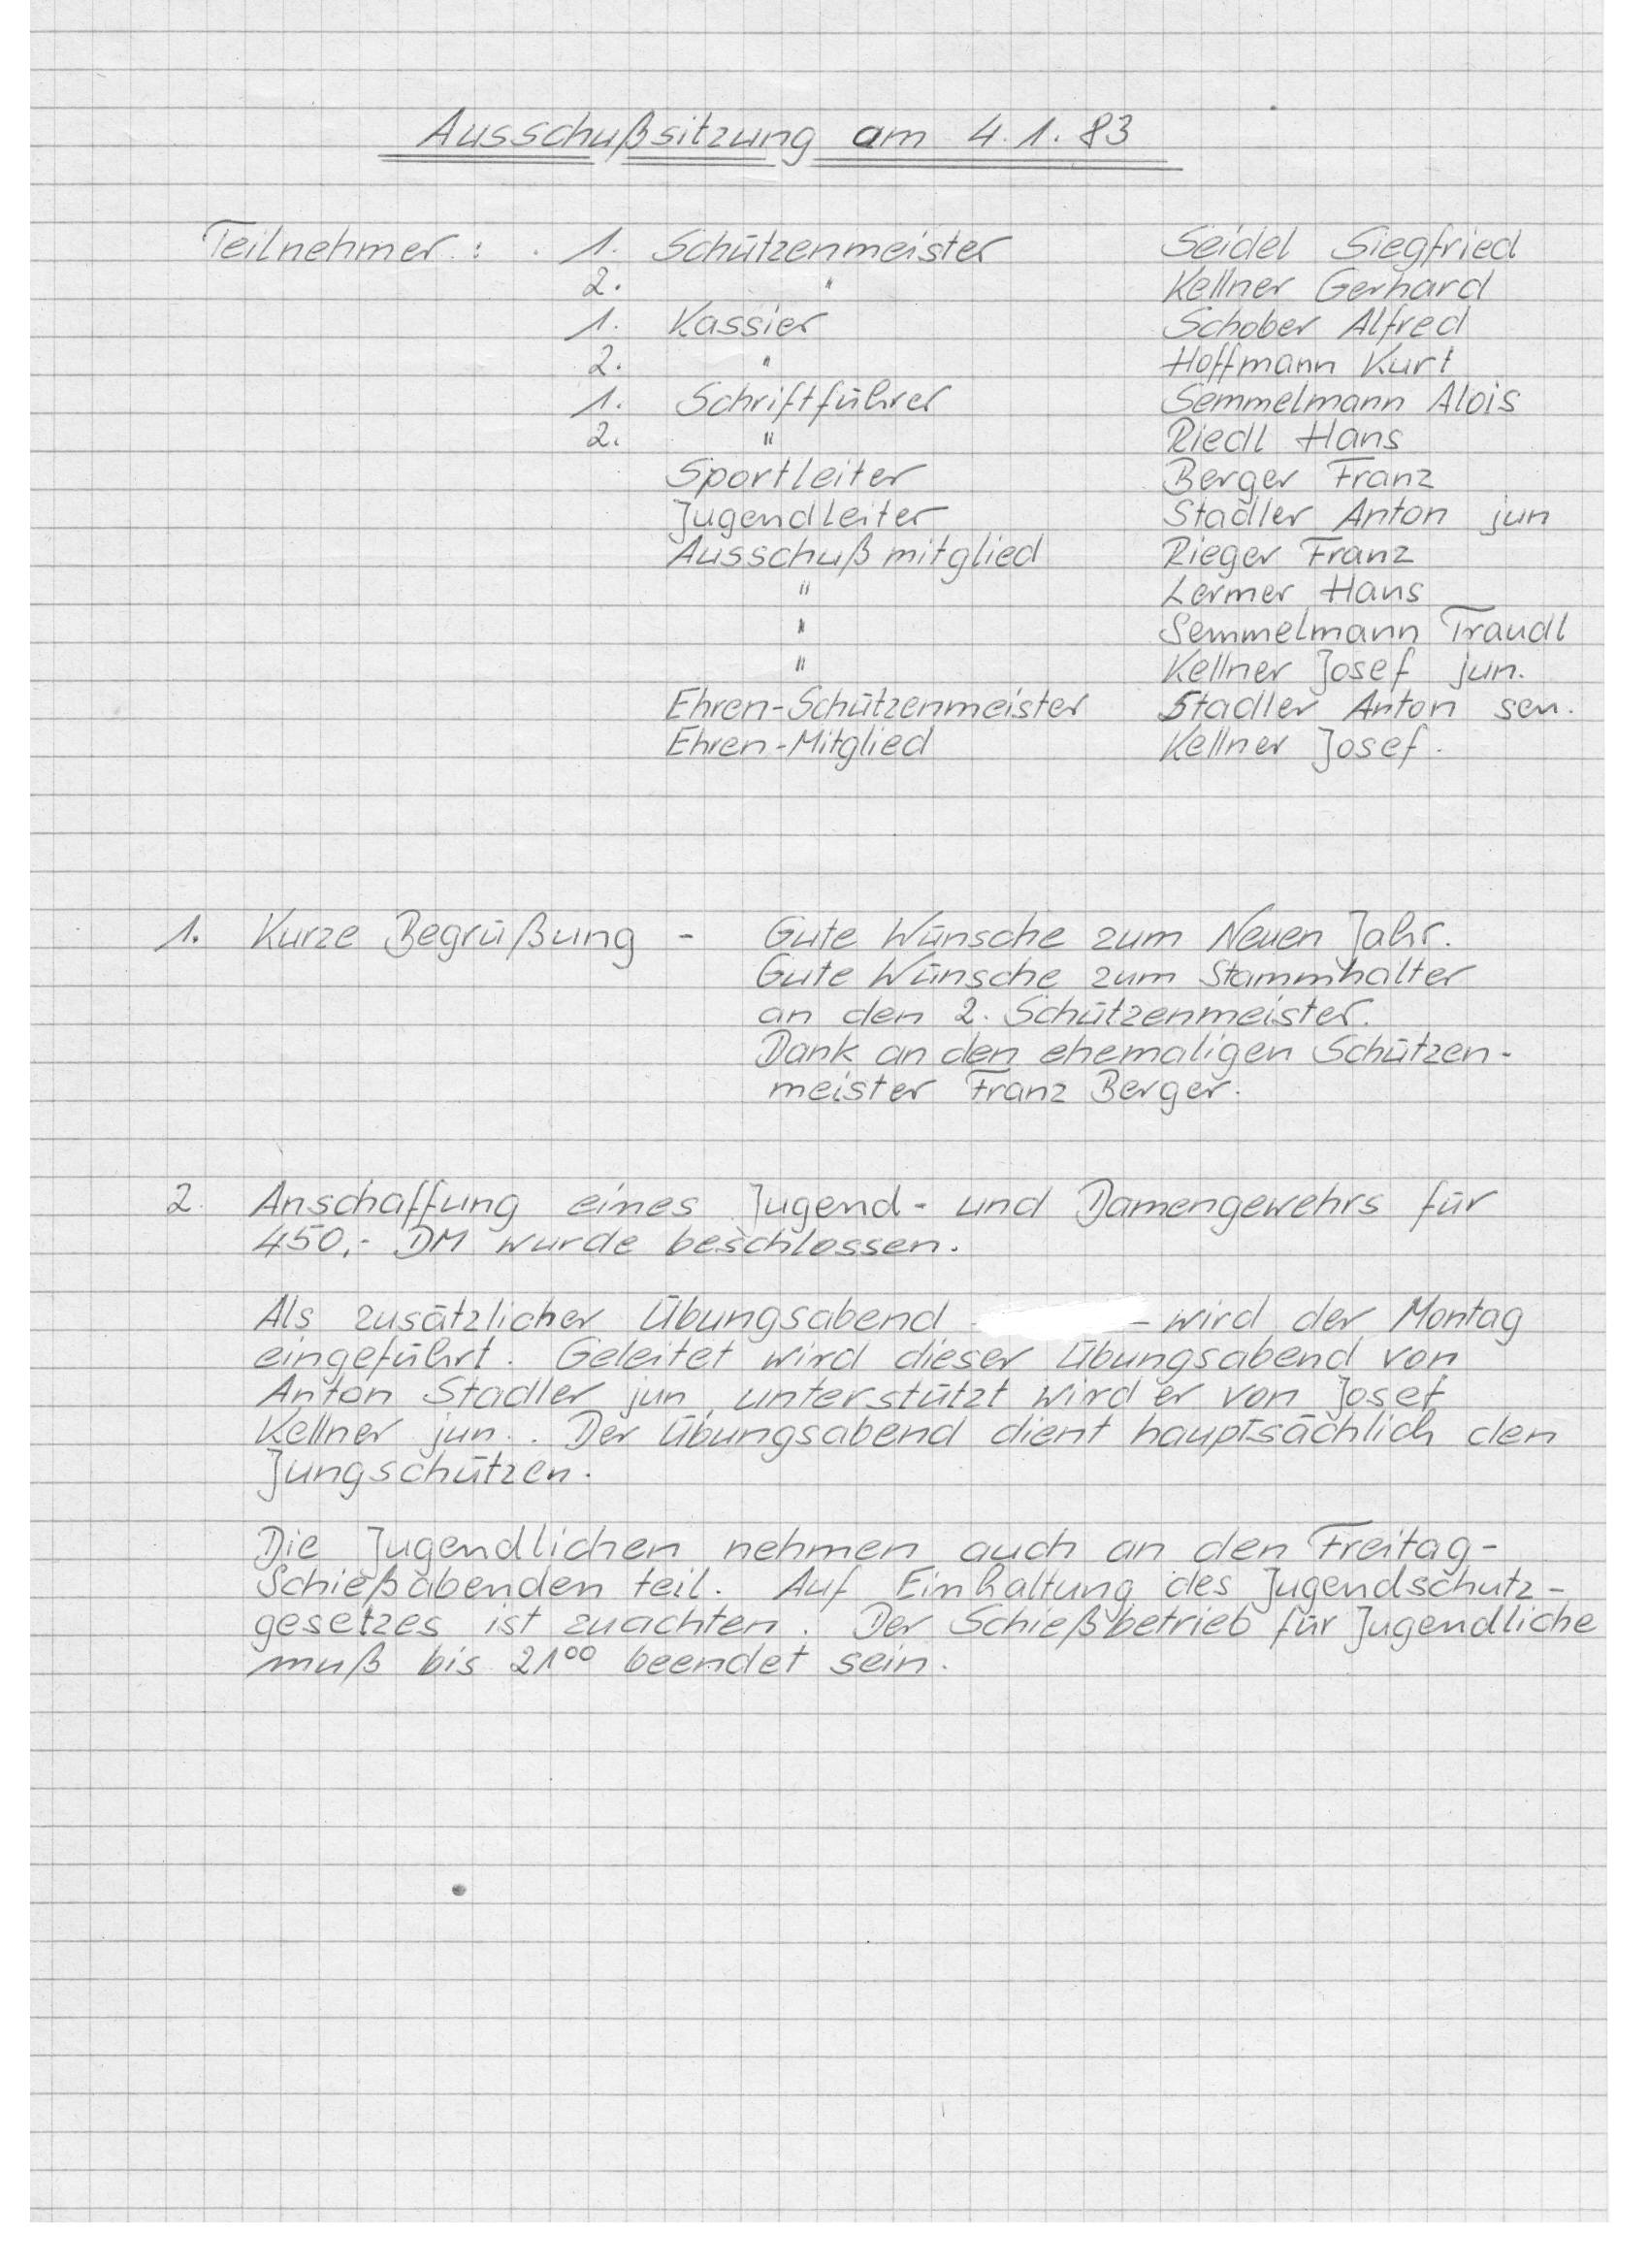 Ausschußsitzung am 4.1.83
Teilnehmer: 1. Schützenmeister Seidel Siegfried
2. " Kellner Gerhard
1. Kassier Schober Alfred
2. " Hoffmann Kurt
1. Schriftführer Semmelmann Alois
2. " Riedl Hans
Sportleiter Berger Franz
Jugendleiter Stadler Anton jun
Ausschußmitglied Rieger Franz
" Lermer Hans
" Semmelmann Traudl
" Kellner Josef jun.
Ehren-Schützenmeister Stadler Anton sen.
Ehren-Mitglied Kellner Josef.
1. Kurze Begrüßung - Gute Wünsche zum Neuen Jahr.
Gute Wünsche zum Stammhalter
an den 2. Schützenmeister.
Dank an den ehemaligen Schützen-
meister Franz Berger.
2. Anschaffung eines Jugend- und Damengewehrs für
450,- DM wurde beschlossen.
Als zusätzlicher Übungsabend wird der Montag
eingeführt. Geleitet wird dieser Übungsabend von
Anton Stadler jun, unterstützt wird er von Josef
Kellner jun.. Der Übungsabend dient hauptsächlich den
Jungschützen.
Die Jugendlichen nehmen auch an den Freitag-
Schießabenden teil. Auf Einhaltung des Jugendschutz-
gesetzes ist zuachten. Der Schießbetrieb für Jugendliche
muß bis 21⁰⁰ beendet sein.